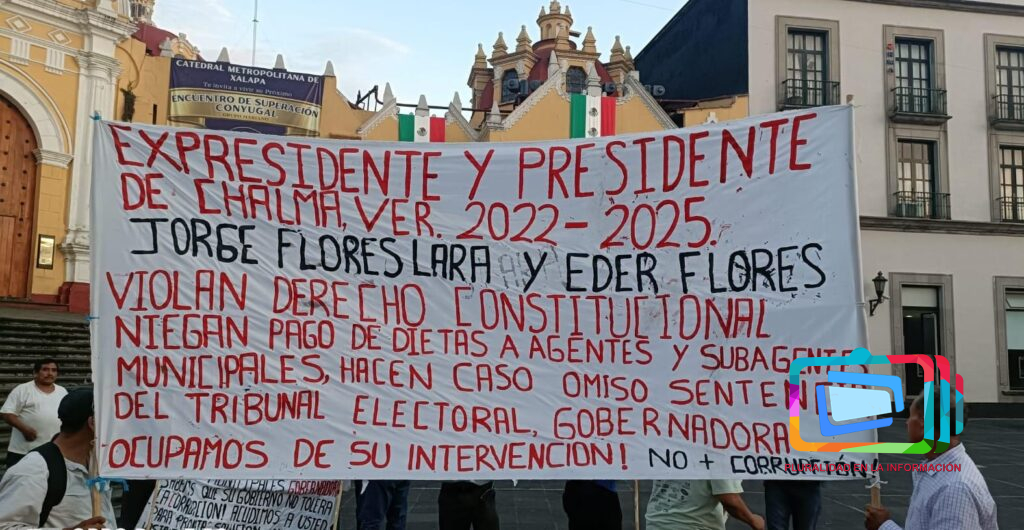 CATEDRAL METROPOLITANA DE
XALAPA
Te invita a vivir su Próximo
ENCUENTRO DE SUPERACIÓN
CONYUGAL
EXPRESIDENTE Y PRESIDENTE
DE CHALMA, VER. 2022-2025.
JORGE FLORES LARA Y EDER FLORES
VIOLAN DERECHO CONSTITUCIONAL
NIEGAN PAGO DE DIETAS A AGENTES Y SUBAGENTE
MUNICIPALES, HACEN CASO OMISO SENTEN
DEL TRIBUNAL ELECTORAL, GOBERNADORA
OCUPAMOS DE SU INTERVENCIÓN! NO + CORRUPCIÓN
PLURALIDAD EN LA INFORMACIÓN
QUE SU GOBIERNO NO TOLERA
LA CORRUPCIÓN! ACUDIMOS A USTED